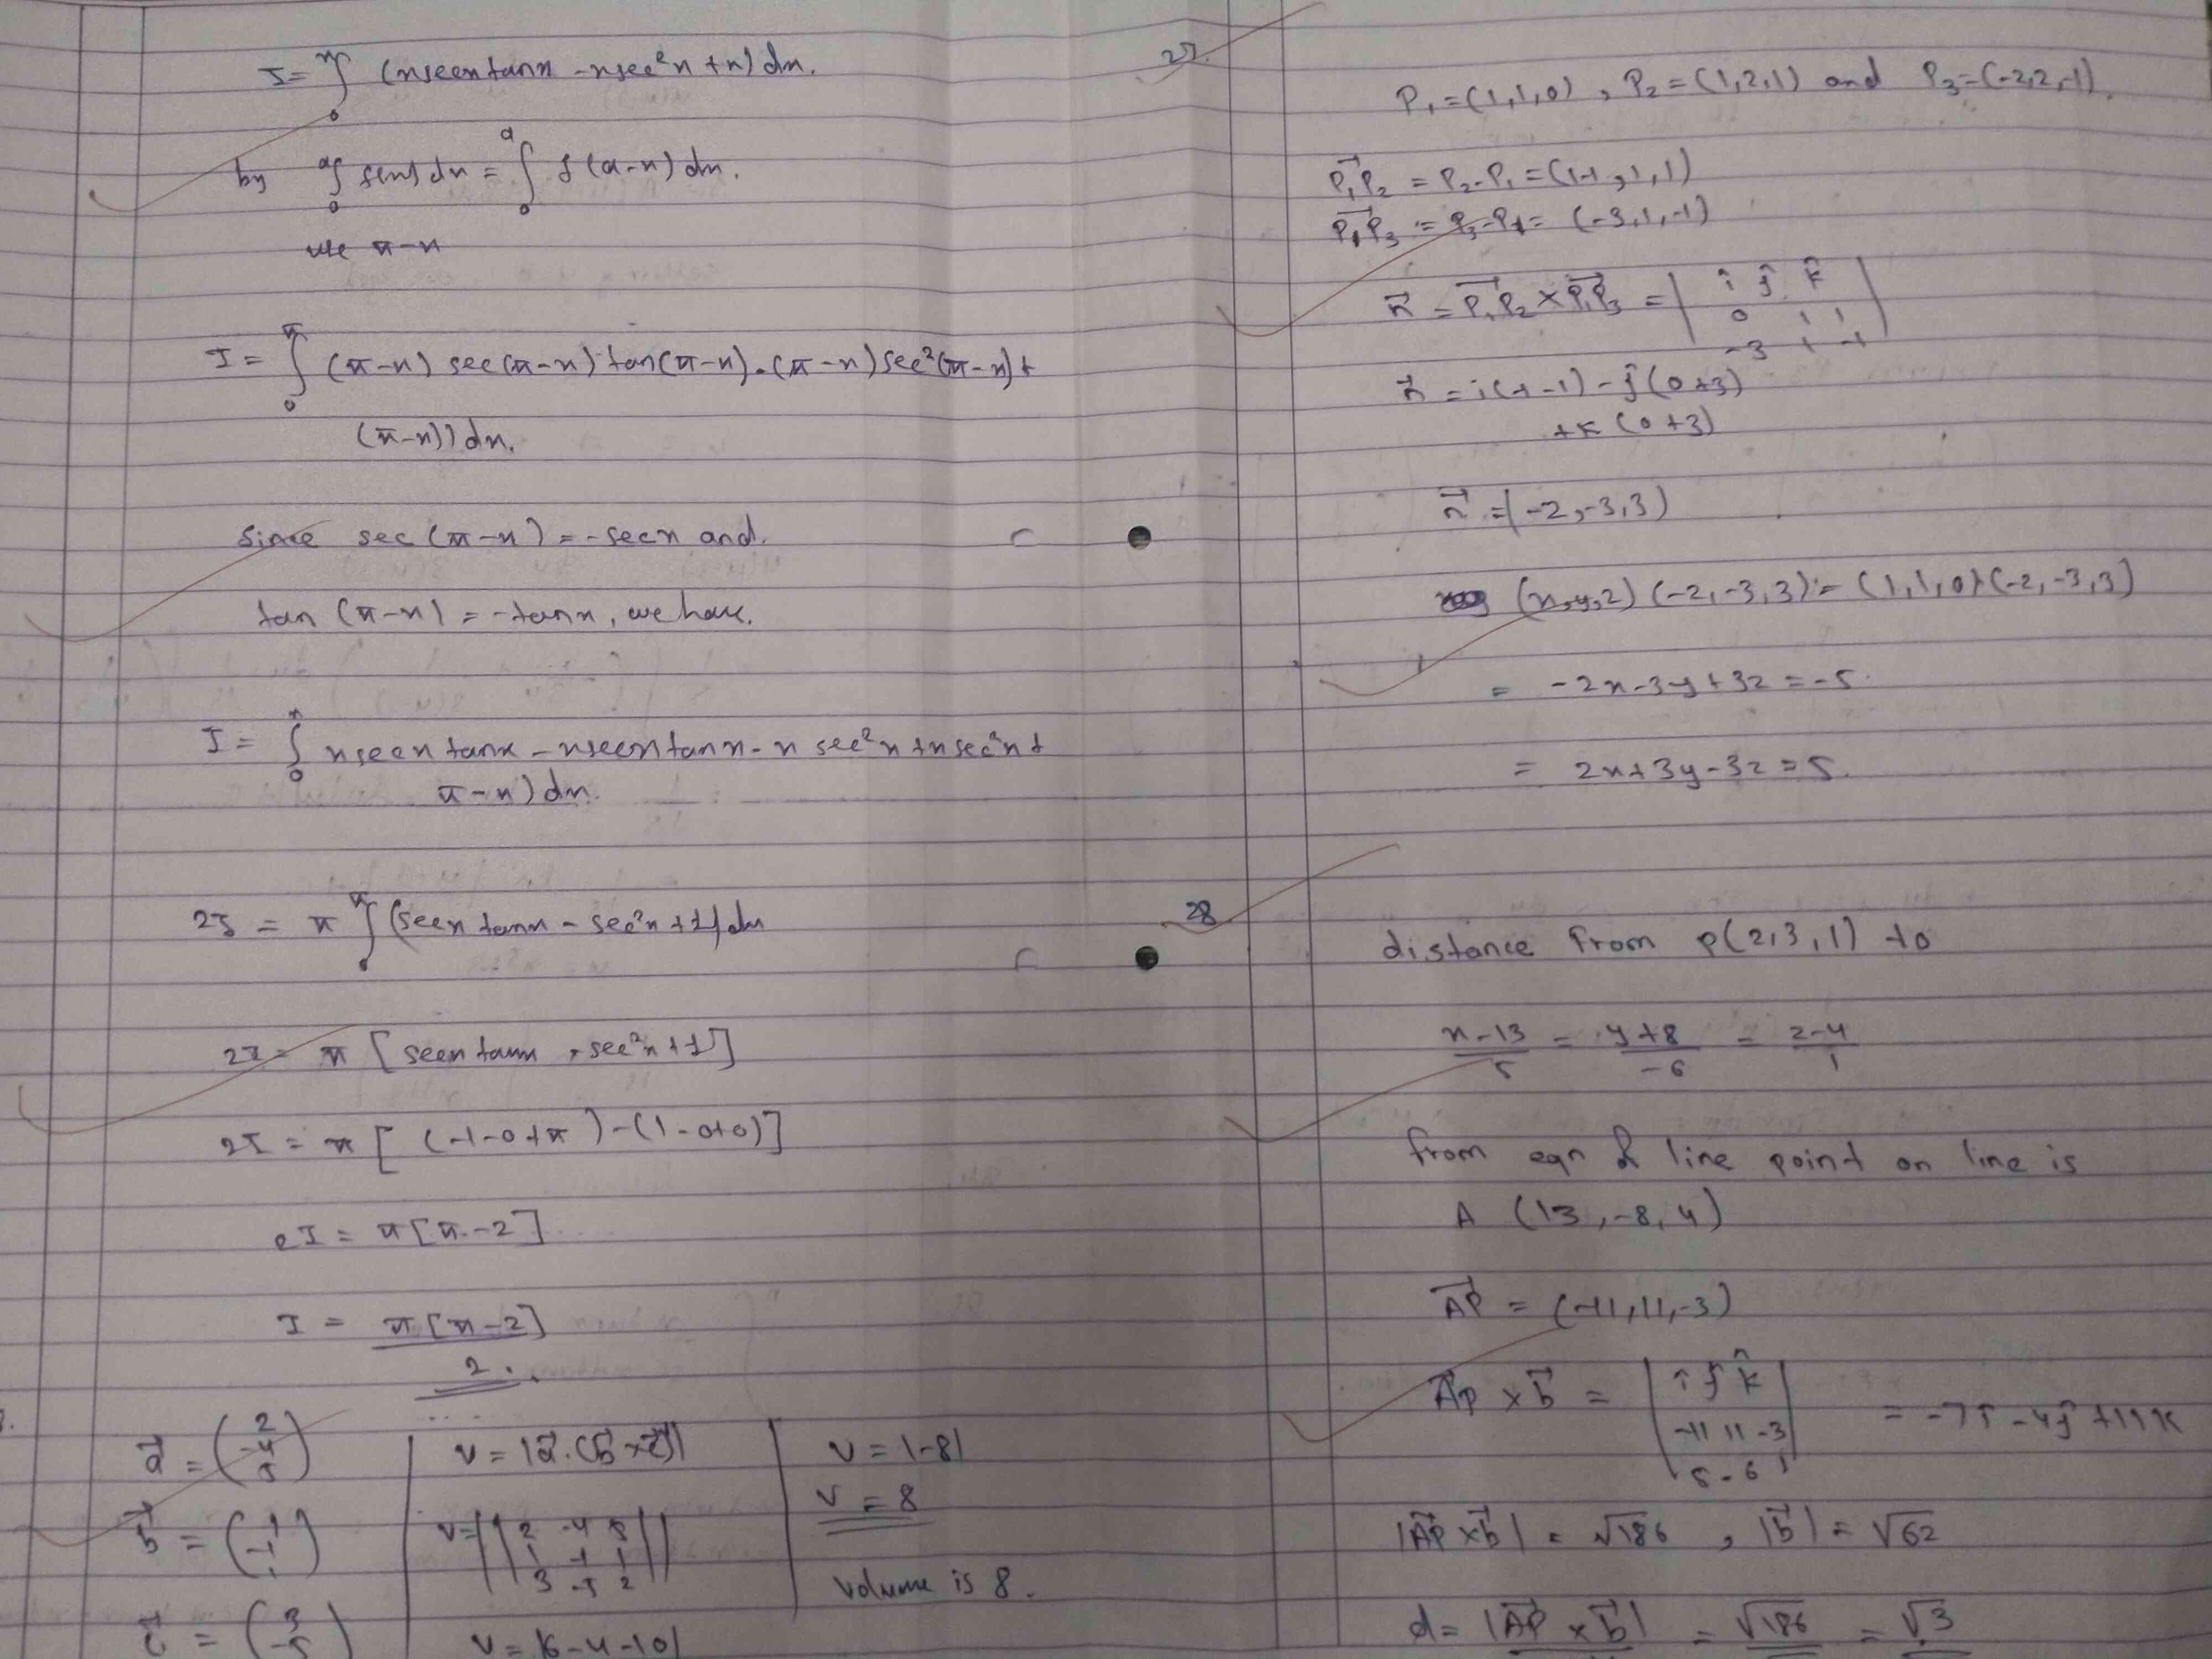 I = ∫₀^π (x sec x tan x - x sec²x + x) dx.
by ₀∫^a f(x) dx = ∫₀^a f(a-x) dx.
use π-x
I = ∫₀^π (π-x) sec(π-x) tan(π-x) - (π-x) sec²(π-x) +
(π-x)) dx.
Since sec (π-x) = -sec x and.
tan (π-x) = -tan x, we have.
I = ∫₀^π π sec x tan x - x sec x tan x - π sec²x + x sec²x +
π-x) dx.
2I = π ∫₀^π (sec x tan x - sec²x + 1) dx
2I = π [sec x tan x + sec²x + 1]
2I = π [(-1-0+π) - (1-0+0)]
2I = π [π-2]
I = π[π-2] / 2.
a⃗ = (2 -4 5)
b⃗ = (1 -1 1)
c⃗ = (3 -5
V = |a⃗.(b⃗ × c⃗)|
V = || 2 -4 5
1 -1 1
3 -5 2 ||
V = |6-4-10|
V = |-8|
V = 8
Volume is 8.
27.
P₁ = (1,1,0), P₂ = (1,2,1) and P₃ = (-2,2,-1).
P₁P₂ = P₂-P₁ = (1-1, 1, 1)
P₁P₃ = P₃-P₁ = (-3,1,-1)
n⃗ = P₁P₂ × P₁P₃ = | î ĵ k̂
0 1 1
-3 1 -1 |
n⃗ = i(-1-1) - ĵ(0+3)
+k (0+3)
n⃗ = (-2,-3,3)
(x,y,z) (-2,-3,3) = (1,1,0) (-2,-3,3)
= -2x-3y+3z = -5.
= 2x+3y-3z = 5.
28
distance from P(2,3,1) to
x-13 / 5 = y+8 / -6 = z-4 / 1
from eqn of line point on line is
A (13,-8,4)
AP⃗ = (-11,11,-3)
AP⃗ × b⃗ = | î ĵ k̂
-11 11 -3
5 -6 1 | = -7î - 4ĵ + 11k
|AP⃗ × b⃗| = √186 , |b⃗| = √62
d = |AP⃗ × b⃗| = √186 = √3